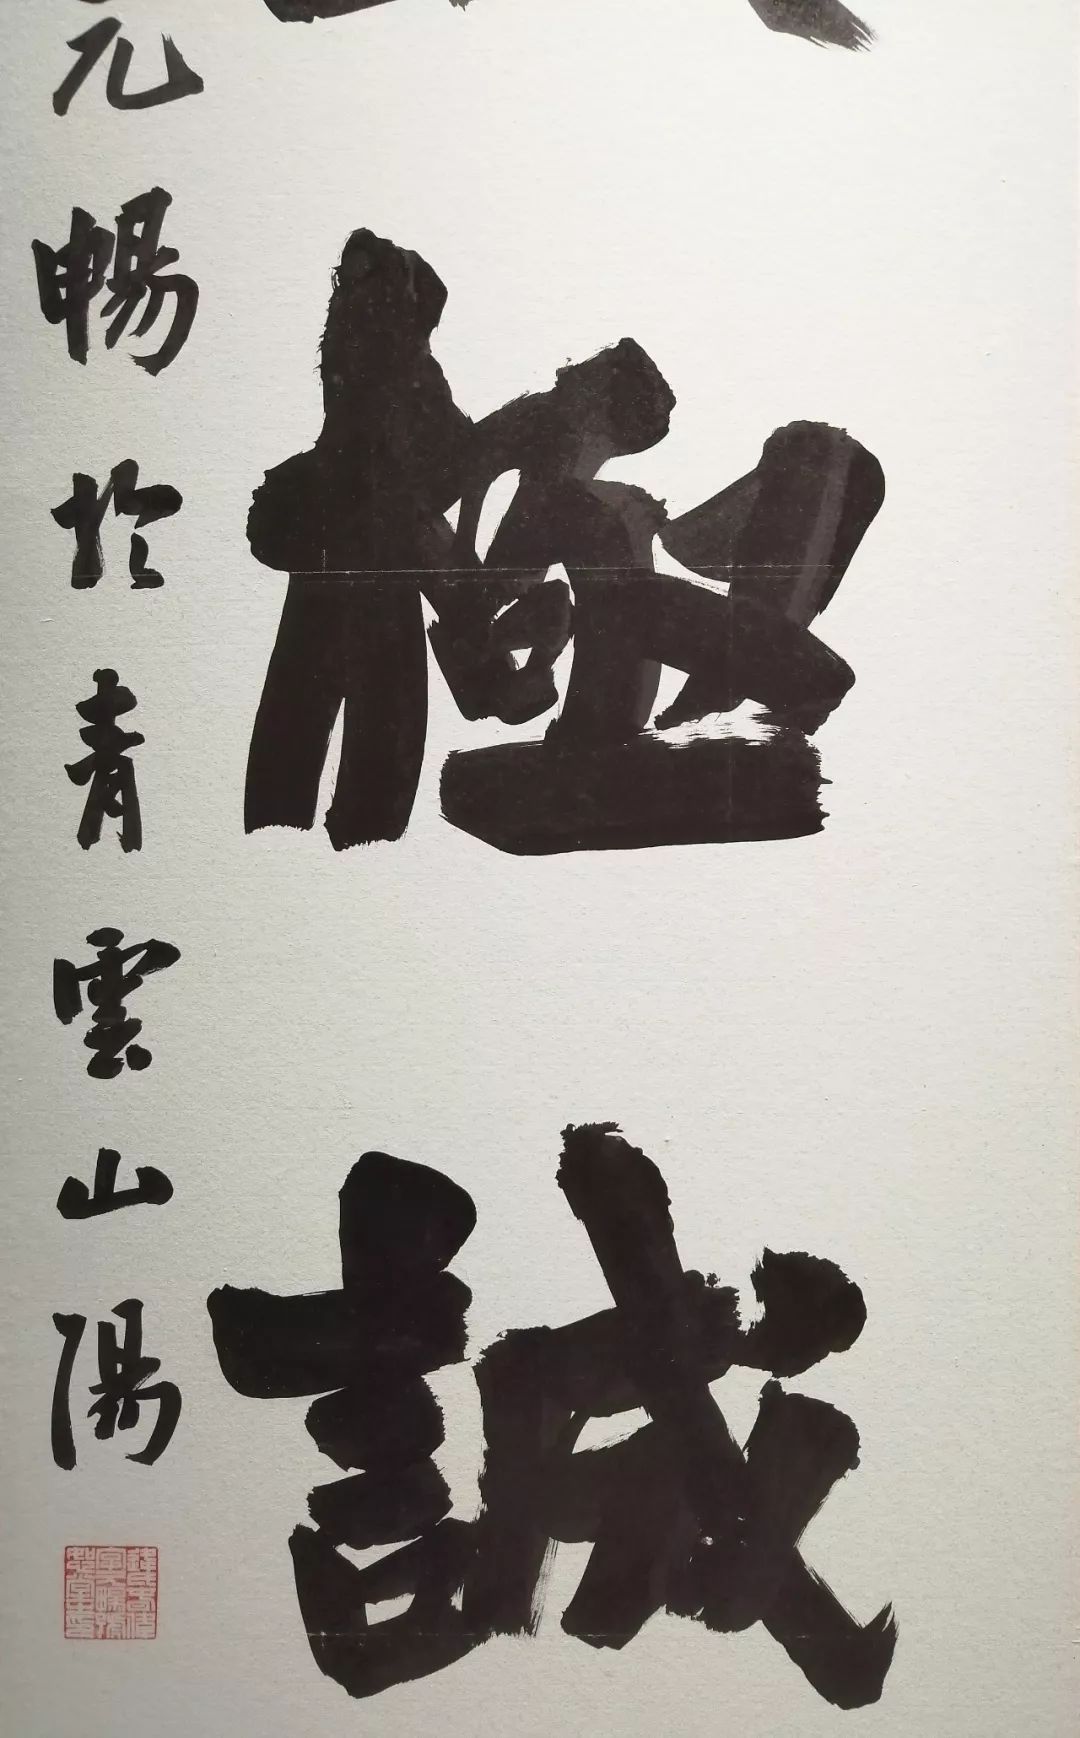 極誠
元暢於青雲山陽